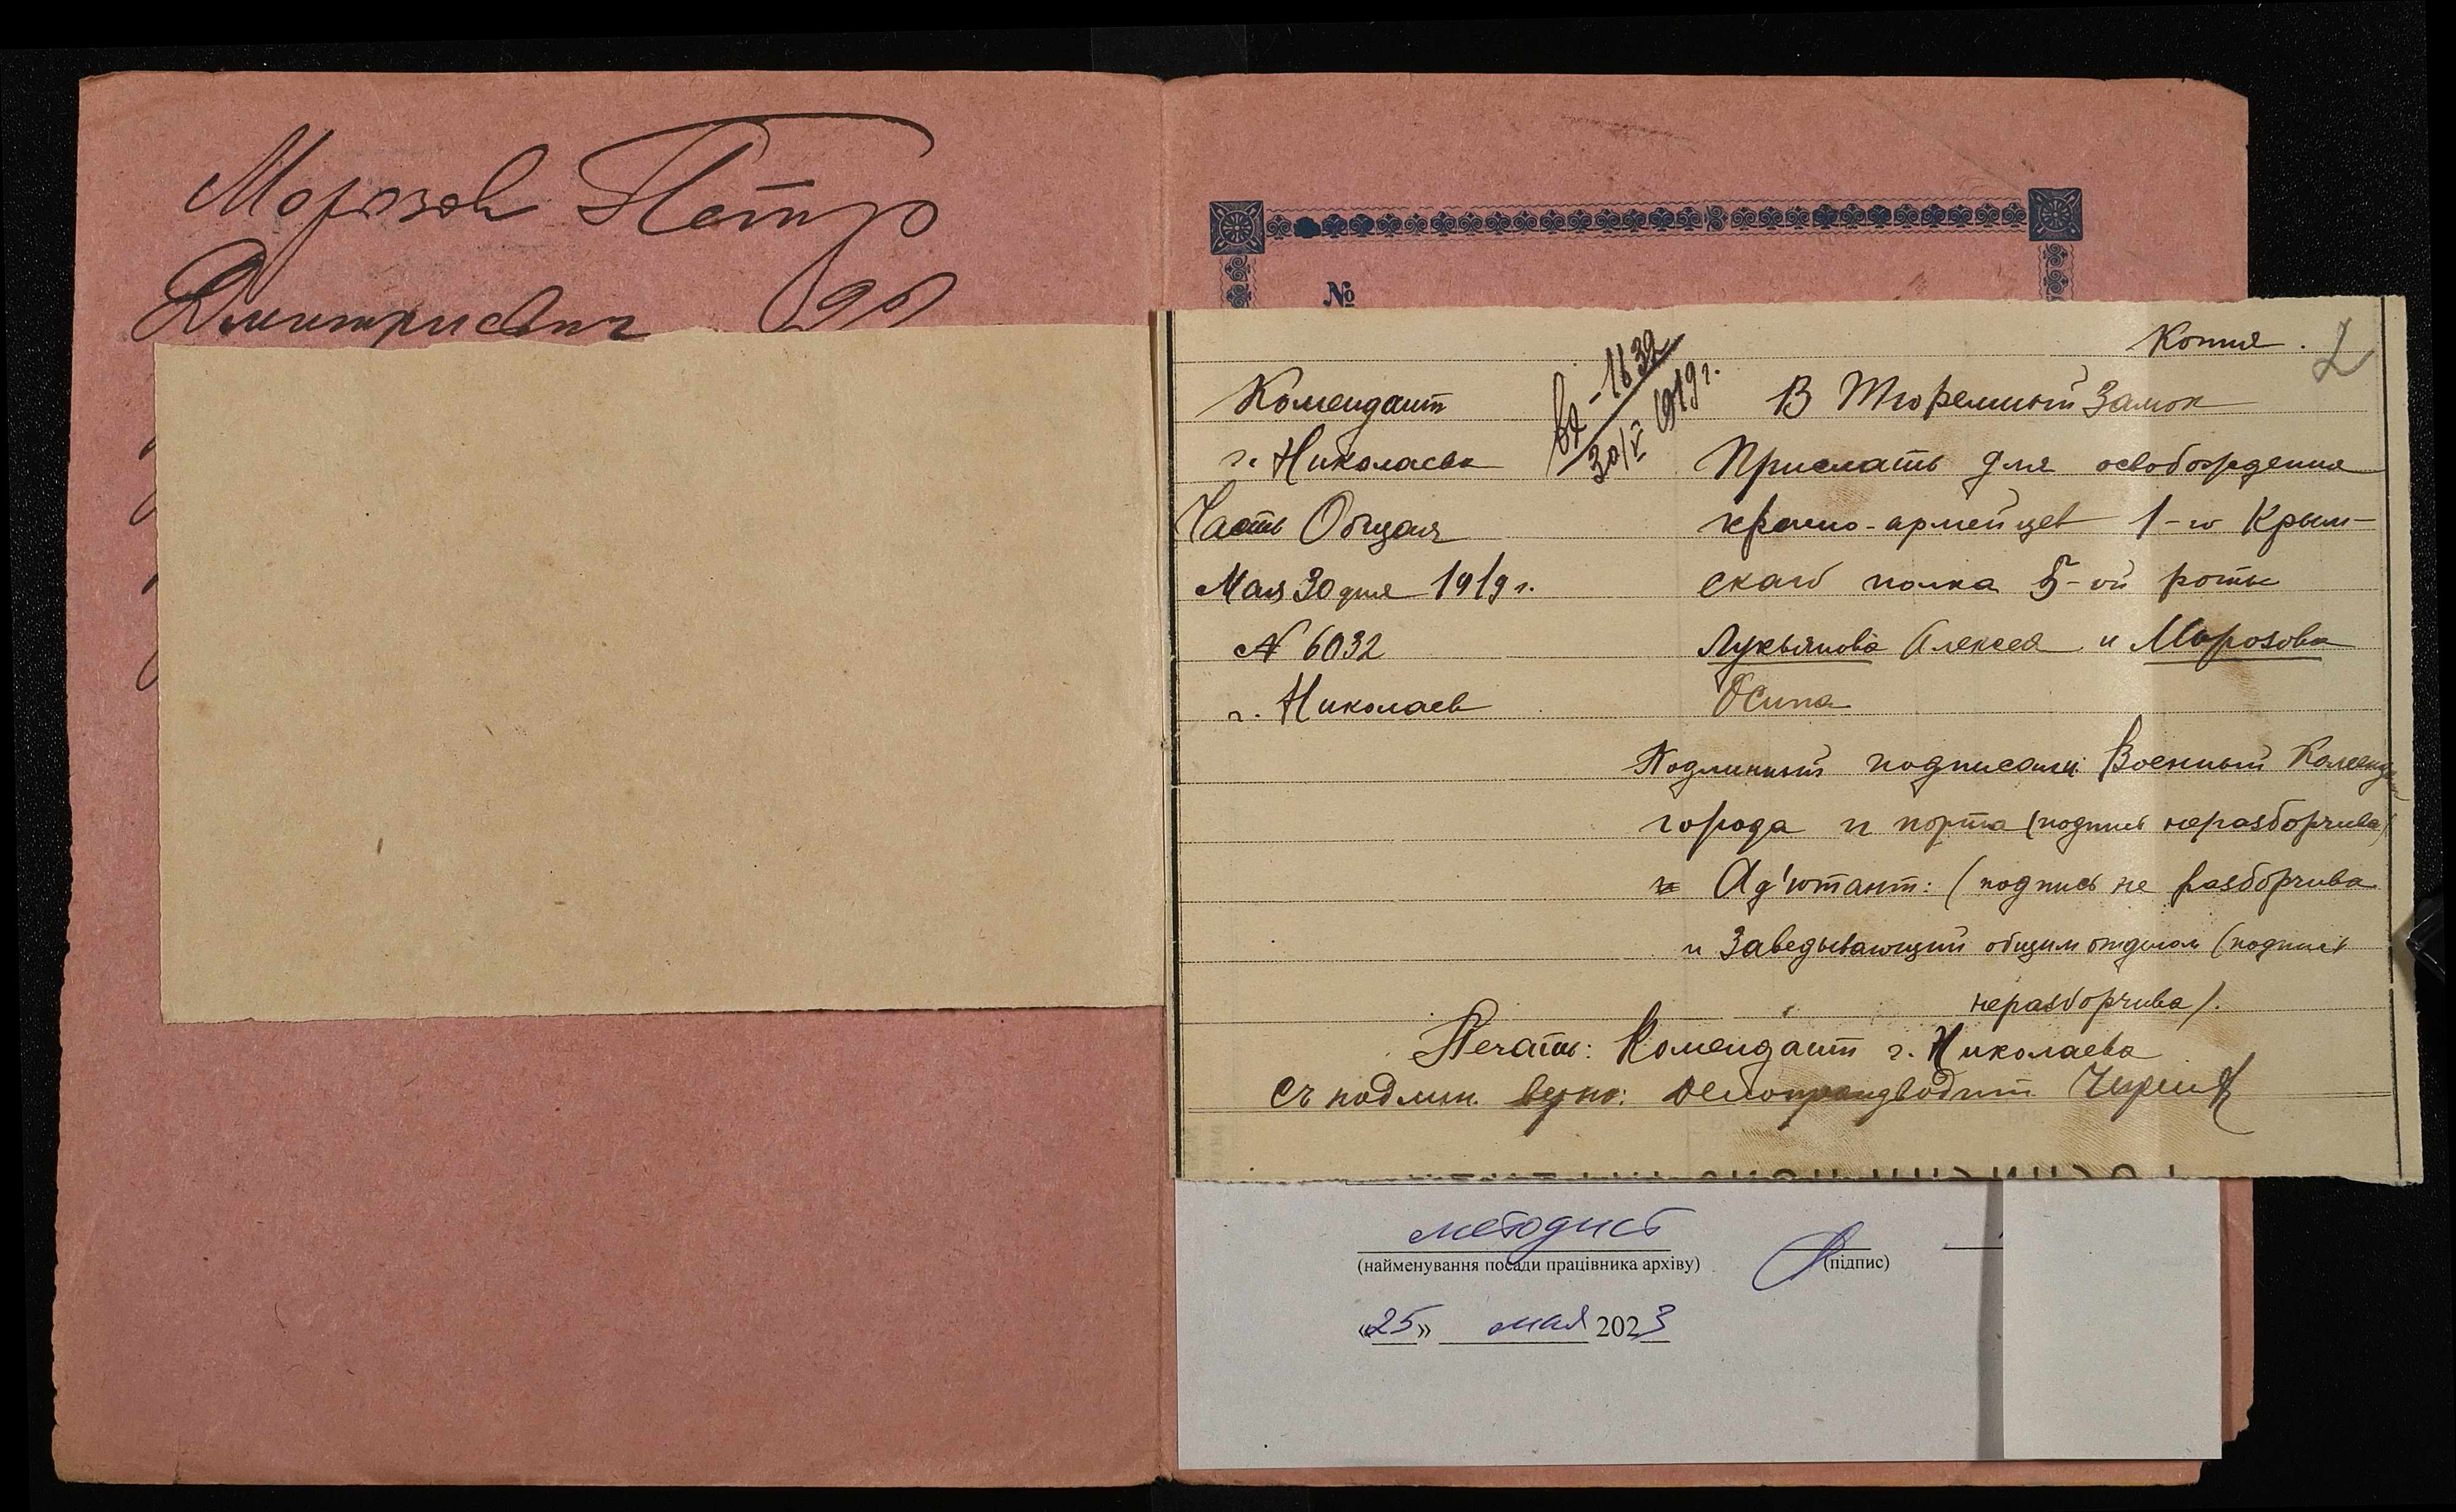 Морозов Петр
Дмитриевич
№
Копия.
2
Комендант
г. Николаева
Часть Общая
Мая 30 дня 1919 г.
№ 6032
г. Николаев
Вх - 1632
30/V 1919 г.
В Тюремный Замок
Прислать для освобождения
красно-армейцев 1-го Крым-
скаго полка 5-ой роты
Лукьянова Алексея и Морозова
Осипа
Подлинный подписали: Военный Комендант
города и порта (подпись неразборчива)
и Ад'ютант: (подпись не разборчива
и Заведывающий общим отделом (подпись
неразборчива).
Печать: Комендант г. Николаева
Съ подлин. верно: Делопроизводит
методист
(найменування посади працівника архіву)
(підпис)
«25» мая 2023